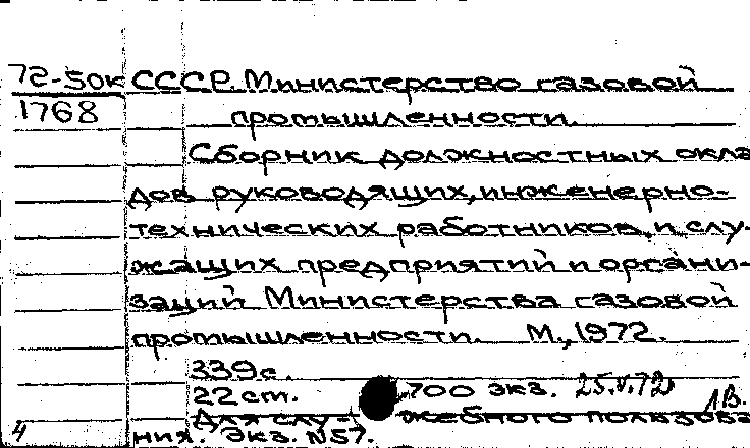 72-50к СССР. Министерство газовой
1768 промышленности.
Сборник должностных окла-
дов руководящих, инженерно-
технических работников и слу-
жащих предприятий и органи-
заций Министерства газовой
промышленности. М., 1972.
339 с.
22 cm. 700 экз. 25.V.72 1В.
Для слу- жебного пользова
ния. Экз. N57.
4